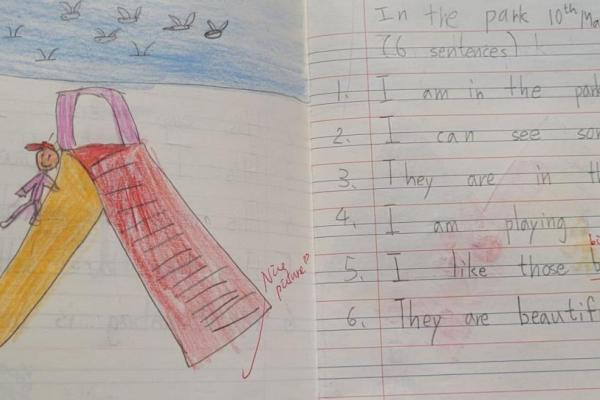 In the park 10th Ma
(6 sentences)
1. I am in the par
2. I can see so
3. They are in th
4. I am playing
5. I like those b
6. They are beautif
Nice
picture